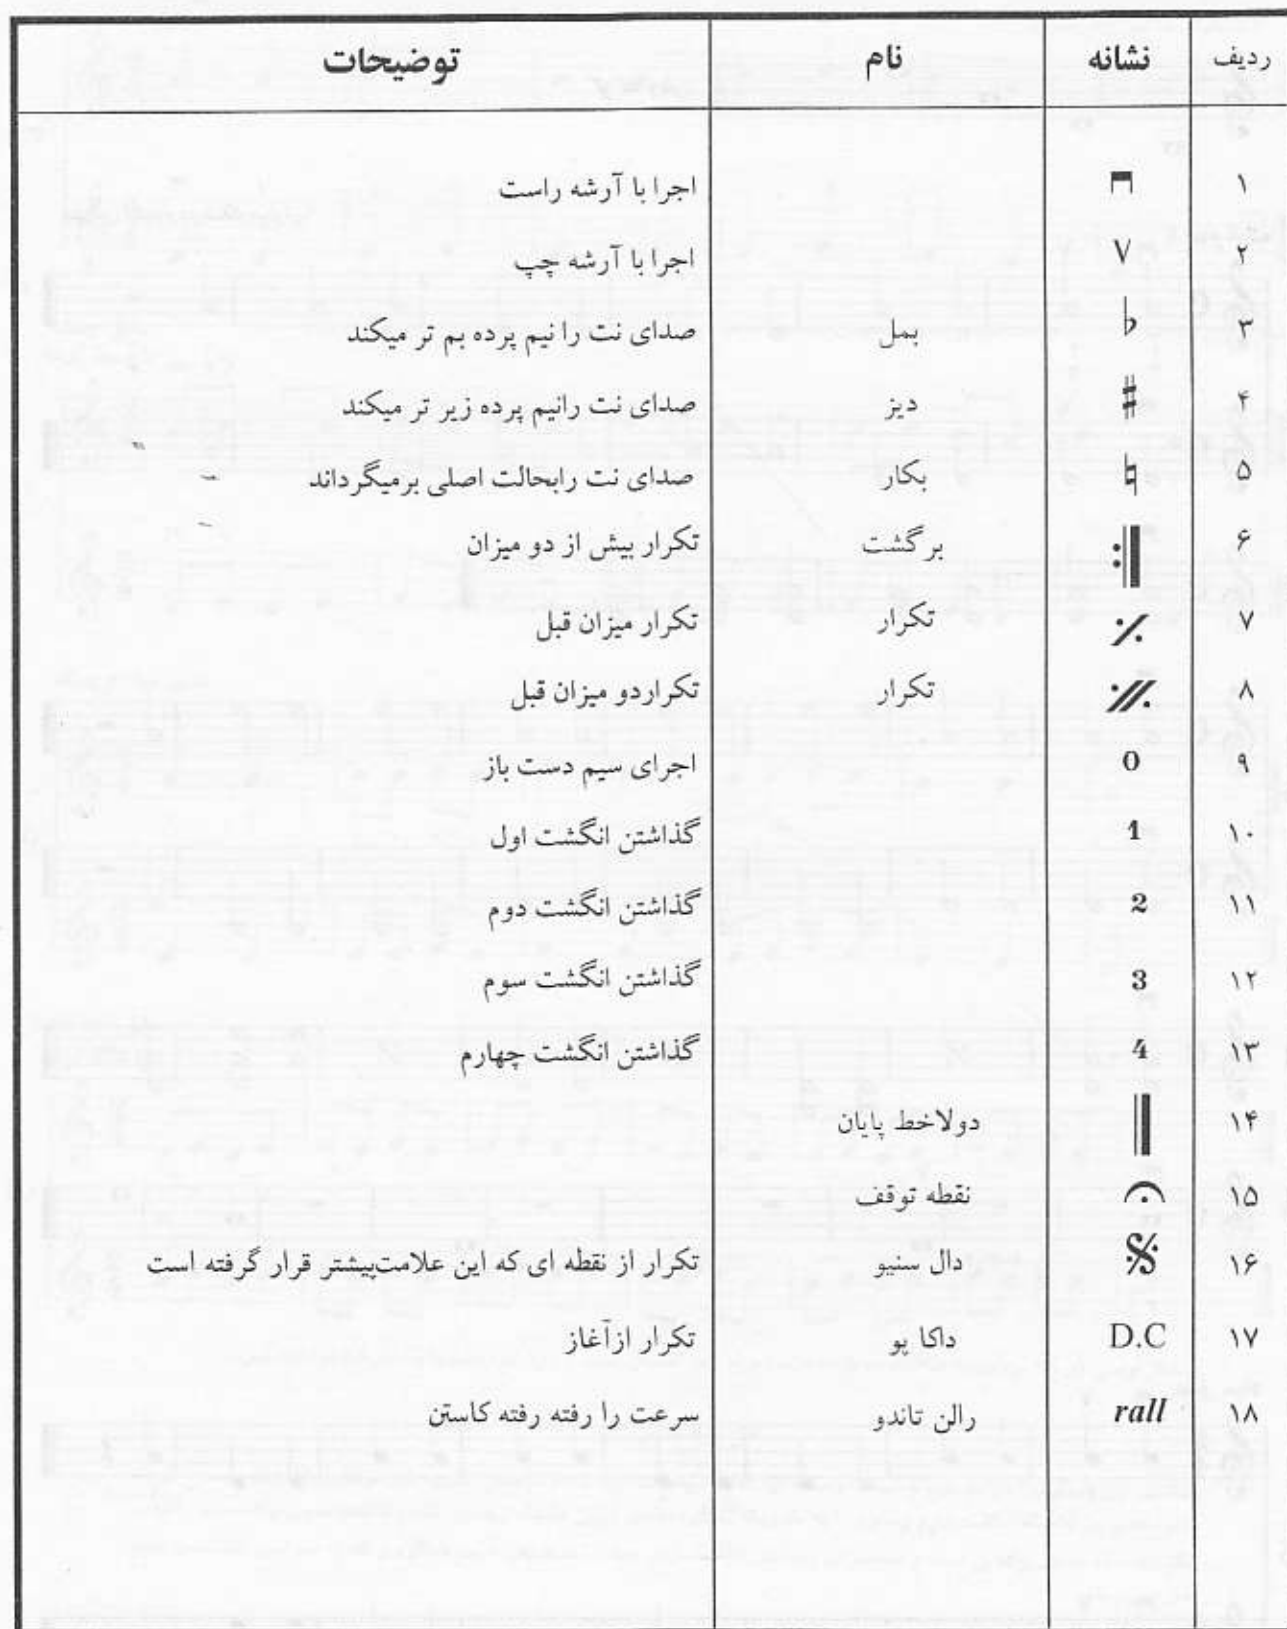 ردیف نشانه نام توضیحات
۱ اجرا با آرشه راست
۲ V اجرا با آرشه چپ
۳ ♭ بمل صدای نت را نیم پرده بم تر میکند
۴ ♯ دیز صدای نت رانیم پرده زیر تر میکند
۵ ♮ بکار صدای نت رابحالت اصلی برمیگرداند
۶ برگشت تکرار بیش از دو میزان
۷ تکرار تکرار میزان قبل
۸ تکرار تکراردو میزان قبل
۹ 0 اجرای سیم دست باز
۱۰ 1 گذاشتن انگشت اول
۱۱ 2 گذاشتن انگشت دوم
۱۲ 3 گذاشتن انگشت سوم
۱۳ 4 گذاشتن انگشت چهارم
۱۴ دولاخط پایان
۱۵ نقطه توقف
۱۶ دال سنیو تکرار از نقطه ای که این علامت‌بیشتر قرار گرفته است
۱۷ D.C داکا پو تکرار ازآغاز
۱۸ rall رالن تاندو سرعت را رفته رفته کاستن